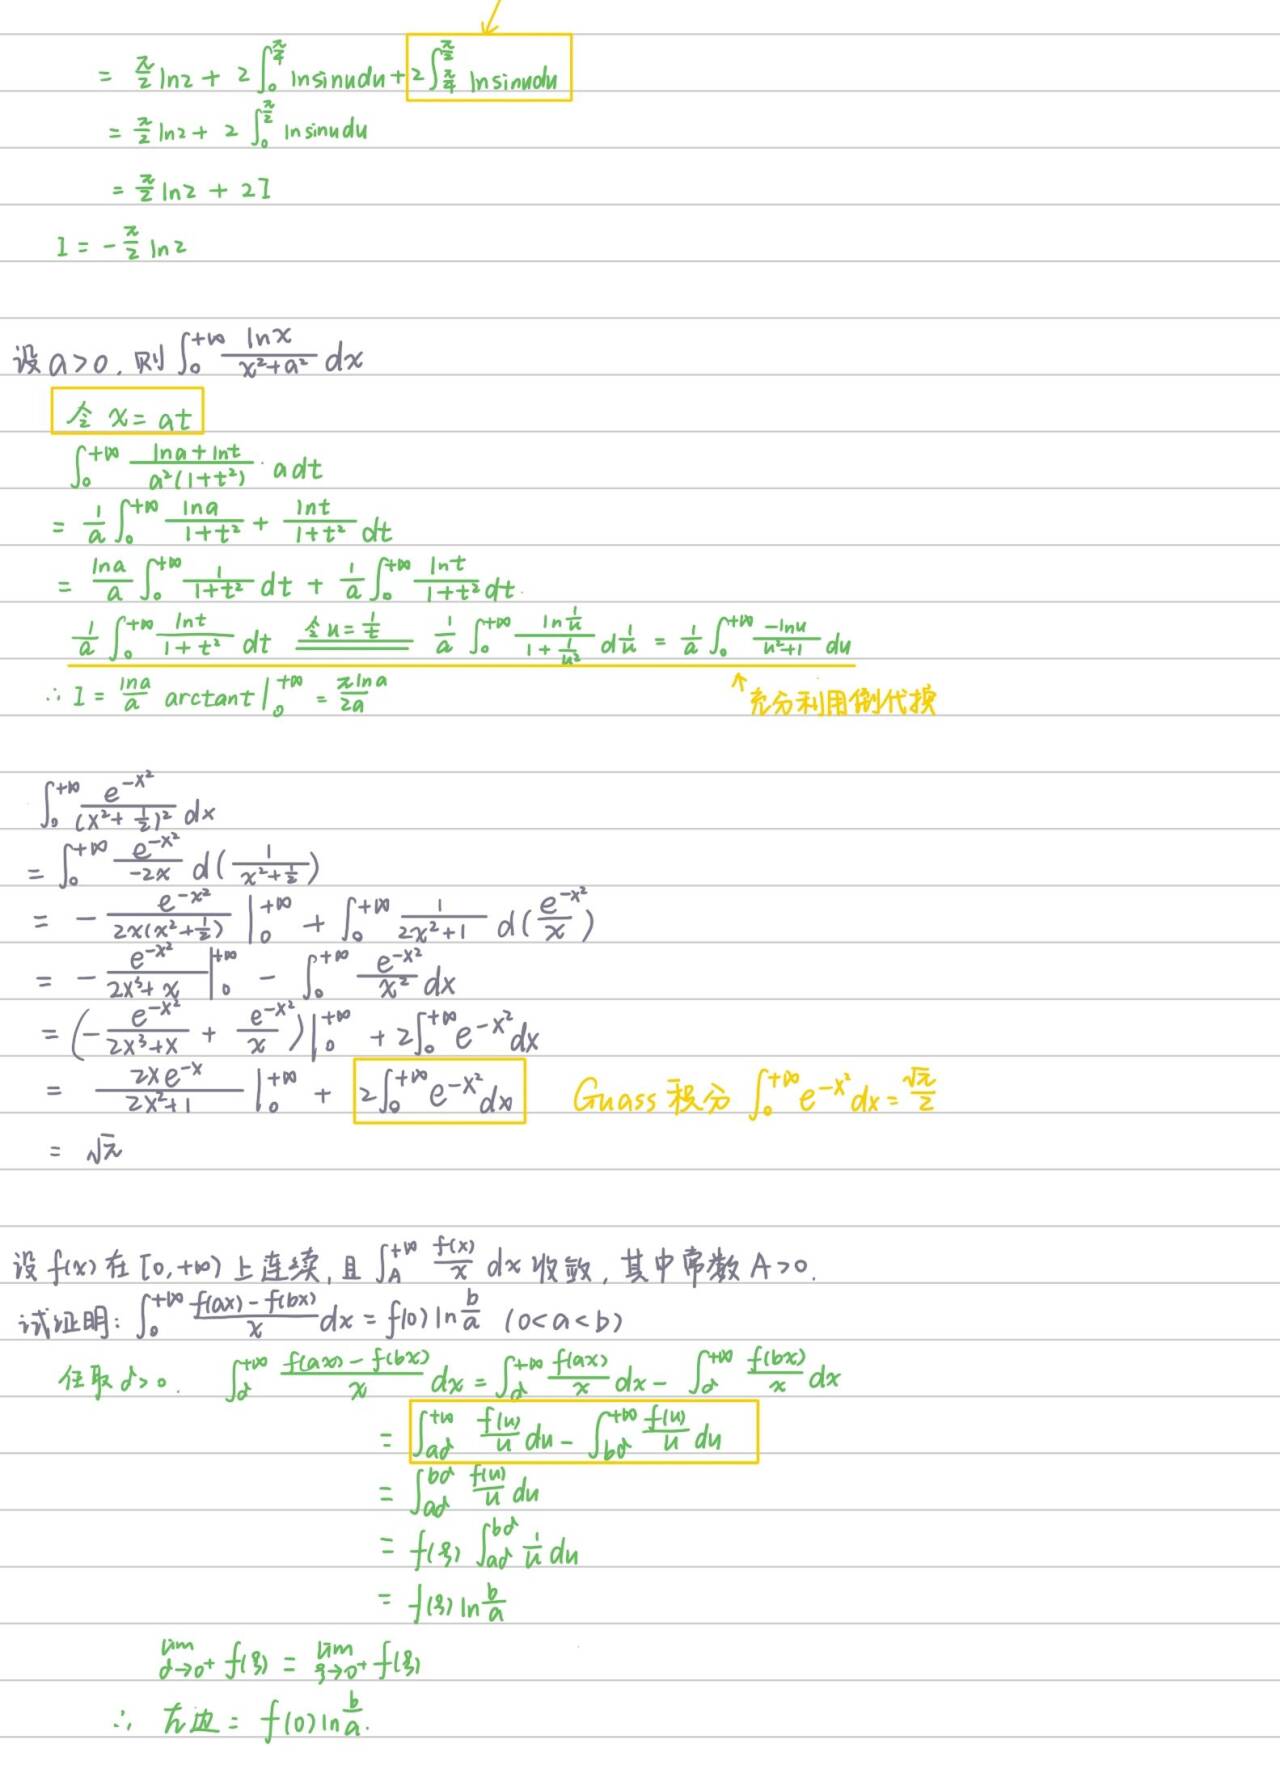 = π/2 ln2 + 2∫₀^{π/4} lnsinudu + 2∫_{π/4}^{π/2} lnsinudu
= π/2 ln2 + 2∫₀^{π/2} lnsinudu
= π/2 ln2 + 2I
I = -π/2 ln2
设 a>0, 则 ∫₀^{+∞} lnx/(x²+a²) dx
令 x = at
∫₀^{+∞} (lna+lnt)/(a²(1+t²)) · adt
= 1/a ∫₀^{+∞} lna/(1+t²) + lnt/(1+t²) dt
= lna/a ∫₀^{+∞} 1/(1+t²) dt + 1/a ∫₀^{+∞} lnt/(1+t²) dt.
1/a ∫₀^{+∞} lnt/(1+t²) dt 令u=1/t 1/a ∫₀^{+∞} ln(1/u)/(1+1/u²) d1/u = 1/a ∫₀^{+∞} -lnu/(u²+1) du
∴ I = lna/a arctant |₀^{+∞} = πlna/2a ↑充分利用倒代换
∫₀^{+∞} e^{-x²}/(x²+1/2)² dx
= ∫₀^{+∞} e^{-x²}/(-2x) d(1/(x²+1/2))
= - e^{-x²}/(2x(x²+1/2)) |₀^{+∞} + ∫₀^{+∞} 1/(2x²+1) d(e^{-x²}/x)
= - e^{-x²}/(2x³+x) |₀^{+∞} - ∫₀^{+∞} e^{-x²}/x² dx
= (- e^{-x²}/(2x³+x) + e^{-x²}/x) |₀^{+∞} + 2∫₀^{+∞} e^{-x²}dx
= 2xe^{-x}/(2x²+1) |₀^{+∞} + 2∫₀^{+∞} e^{-x²}dx Guass 积分 ∫₀^{+∞} e^{-x²}dx = √π/2
= √π
设 f(x) 在 [0,+∞) 上连续, 且 ∫_A^{+∞} f(x)/x dx 收敛, 其中常数 A>0.
试证明: ∫₀^{+∞} (f(ax)-f(bx))/x dx = f(0) ln b/a (0<a<b)
任取 α>0. ∫_α^{+∞} (f(ax)-f(bx))/x dx = ∫_α^{+∞} f(ax)/x dx - ∫_α^{+∞} f(bx)/x dx
= ∫_{aα}^{+∞} f(u)/u du - ∫_{bα}^{+∞} f(u)/u du
= ∫_{aα}^{bα} f(u)/u du
= f(ξ) ∫_{aα}^{bα} 1/u du
= f(ξ) ln b/a
lim_{α→0⁺} f(ξ) = lim_{ξ→0⁺} f(ξ)
∴ 左边 = f(0) ln b/a.